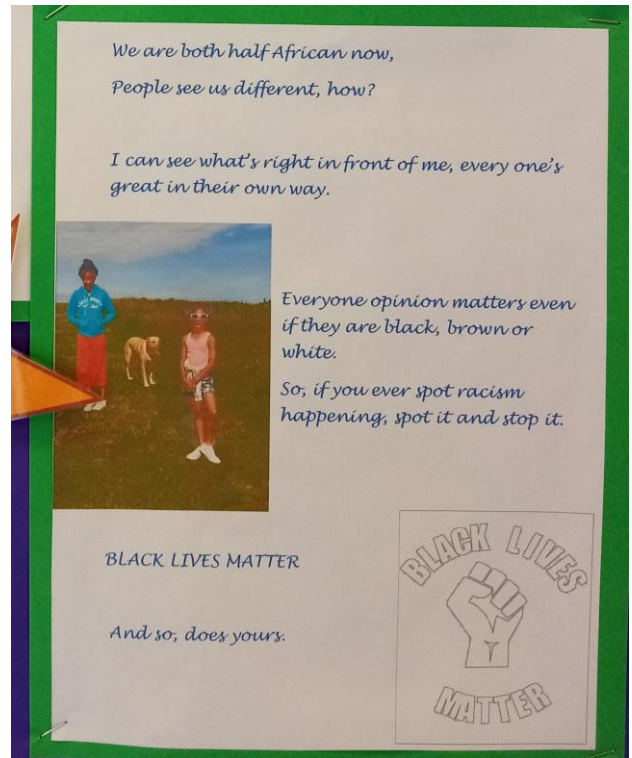 We are both half African now,
People see us different, how?
I can see what's right in front of me, every one's
great in their own way.
Everyone opinion matters even
if they are black, brown or
white.
So, if you ever spot racism
happening, spot it and stop it.
BLACK LIVES MATTER
And so, does yours.
BLACK LIVES
MATTER